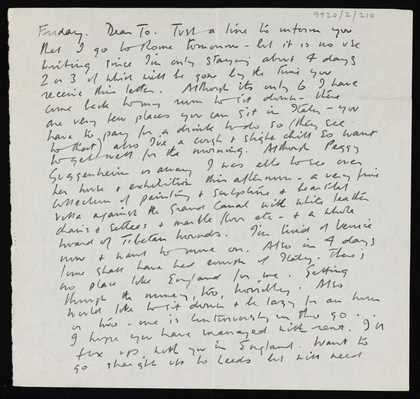 9920/2/210
Friday. Dear Jo. Just a line to inform you
that I go to Rome tomorrow - but it is no use
writing since I'm only staying about 4 days
2 or 3 of which will be gone by the time you
receive this letter. Although its only 6 I have
come back to my room to sit down - there
are very few places you can sit in Italy - you
have to pay for a drink to do so (they see
to that) also I've a cough & slight chill so want
to get well for the morning. Although Peggy
Guggenheim is away I was able to see over
her house & exhibition this afternoon - a very fine
collection of painting & sculpture & beautiful
villa against the Grand Canal with white leather
chairs & settees & marble floors etc - & a whole
hoard of Tibetan hounds. I'm tired of Venice
now & want to move on. Also in 4 days
time shall have had enough of Italy. There's
no place like England for me. Getting
through the money, too, horribly. Also
would like to sit down & be lazy for an hour
or two - one is continuously on the go..
I hope you have managed with rent. I'll
fix up with you in England. Want to
go straight up to Leeds but will need